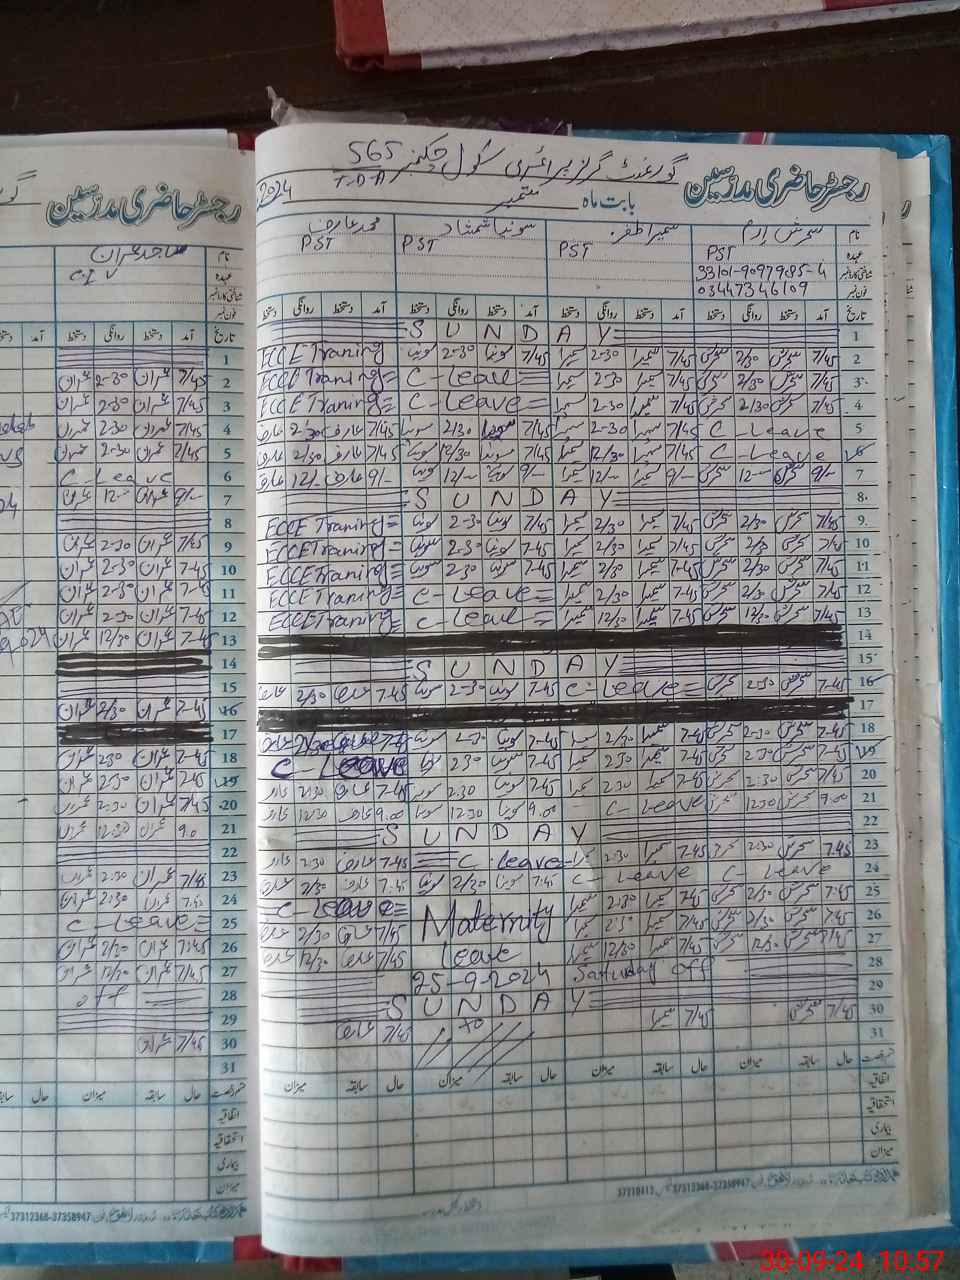 رجسٹر حاضری مدرسین
گورنمنٹ گرلز پرائمری سکول چکنمبر 565
T.D.A
بابت ماہ ستمبر 2024
نام سحرش ارم سمیرا ظفر سونیا شمشاد محمد عارف
عہدہ PST PST PST PST
شناختی کارڈ نمبر 33101-9097985-4
فون نمبر 03447346109
تاریخ آمد دستخط روانگی دستخط آمد دستخط روانگی دستخط آمد دستخط روانگی دستخط آمد دستخط روانگی دستخط
1 SUNDAY
2 7/45 سحرش 2/30 سحرش 7/45 سمیرا 2-30 سمیرا 7/45 سونیا 2-30 سونیا ECCE Traning
3 7/45 سحرش 2/30 سحرش 7/45 سمیرا 2-30 سمیرا C-Leave ECCE Traning
4 7/45 سحرش 2/30 سحرش 7/45 سمیرا 2-30 سمیرا C-Leave ECCE Traning
5 C-Leave 7/45 سمیرا 2-30 سمیرا 7/45 سونیا 2/30 سونیا 7/45 عارف 2/30 عارف
6 C-Leave 7/45 سمیرا 12/30 سمیرا 7/45 سونیا 12/30 سونیا 7/45 عارف 2/30 عارف
7 9/- سحرش 12- سحرش 9/- سمیرا 12/- سمیرا 9/- سونیا 12/- سونیا 9/- عارف 12/- عارف
8 SUNDAY
9 7/45 سحرش 2/30 سحرش 7/45 سمیرا 2/30 سمیرا 7/45 سونیا 2-30 سونیا ECCE Traning
10 7/45 سحرش 2/30 سحرش 7/45 سمیرا 2/30 سمیرا 7-45 سونیا 2-30 سونیا ECCE Traning
11 7/45 سحرش 2/30 سحرش 7-45 سمیرا 2/30 سمیرا 7-45 سونیا 2-30 سونیا ECCE Traning
12 7/45 سحرش 2/30 سحرش 7-45 سمیرا 2/30 سمیرا C-Leave ECCE Traning
13 7/45 سحرش 12/30 سحرش 7-45 سمیرا 12/30 سمیرا C-Leave ECCE Traning
14
15 SUNDAY
16 7-45 سحرش 2-30 سحرش C-Leave 7-45 سونیا 2-30 سونیا 7-45 عارف 2/30 عارف
17
18 7-45 سحرش 2-30 سحرش 7-45 سمیرا 2/30 سمیرا 7-45 سونیا 2-30 سونیا
19 7/45 سحرش 2-30 سحرش 7-45 سمیرا 2-30 سمیرا 7-45 سونیا 2-30 سونیا C-Leave
20 7/45 سحرش 2-30 سحرش 7-45 سمیرا 2-30 سمیرا 7-45 سونیا 2-30 سونیا 7-45 عارف 2-30 عارف
21 9.00 سحرش 12-30 سحرش C-Leave 9.00 سونیا 12-30 سونیا 9.00 عارف 12/30 عارف
22 SUNDAY
23 7-45 سحرش 2-30 سحرش 7-45 سمیرا 2-30 سمیرا C-Leave 7-45 عارف 2-30 عارف
24 C-Leave C-Leave 7-45 سونیا 2/30 سونیا 7-45 عارف 2/30 عارف
25 7-45 سحرش 2/30 سحرش 7-45 سمیرا 2-30 سمیرا Maternity C-Leave
26 7/45 سحرش 2/30 سحرش 7/45 سمیرا 2/30 سمیرا 7/45 عارف 2/30 عارف
27 7/45 سحرش 12/30 سحرش 7/45 سمیرا 12/30 سمیرا Leave 7/45 عارف 12/30 عارف
28 Saturday off 25-9-2024
29 SUNDAY
30 7/45 سحرش 7/45 سمیرا to 7/45 عارف
31
حال سابقہ میزان حال سابقہ میزان حال سابقہ میزان حال سابقہ میزان
اتفاقیہ
استحقاقیہ
بیماری
میزان
37312368-37358947
رجسٹر حاضری مدرسین
نام ساجد عمران
عہدہ C.I
شناختی کارڈ نمبر
فون نمبر
تاریخ آمد دستخط روانگی دستخط
1
2 7/45 عمران 2-30 عمران
3 7/45 عمران 2-30 عمران
4 7/45 عمران 2-30 عمران
5 7/45 عمران 2-30 عمران
6 C-Leave
7 9/- عمران 12- عمران
8
9 7/45 عمران 2-30 عمران
10 7-45 عمران 2-30 عمران
11 7-45 عمران 2-30 عمران
12 7-45 عمران 2-30 عمران
13 7-45 عمران 12/30 عمران
14
15
16 7-45 عمران 2/30 عمران
17
18 7-45 عمران 2-30 عمران
19 7-45 عمران 2-30 عمران
20 7/45 عمران 2-30 عمران
21 9.0 عمران 12-30 عمران
22
23 7/45 عمران 2-30 عمران
24 7-45 عمران 2-30 عمران
25 C-Leave
26 7-45 عمران 2/30 عمران
27 7/45 عمران 12/30 عمران
28 off
29
30 7/45 عمران
31
حال سابقہ میزان
اتفاقیہ
استحقاقیہ
بیماری
میزان
37312368-37358947
30-09-24 10:57